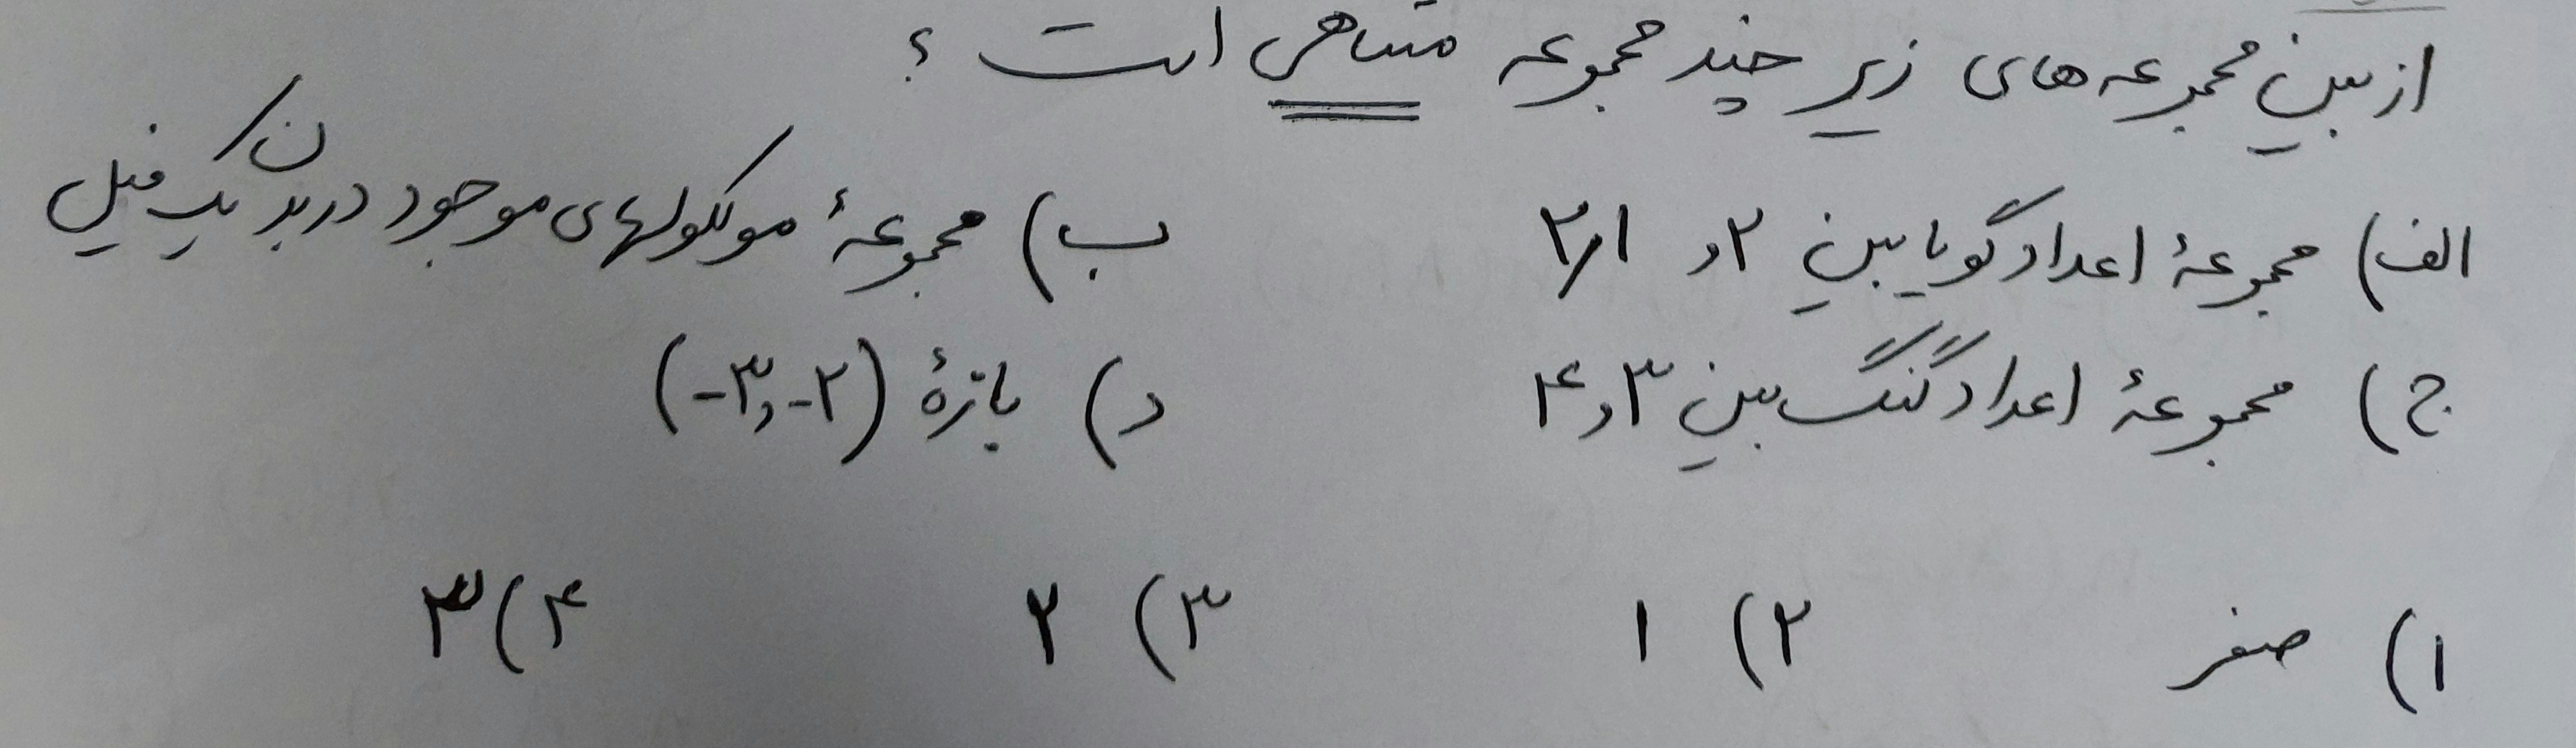 از بین مجموعه های زیر چند مجموعه متناهی است ؟
الف) مجموعهٔ اعداد گویا بین ۲ و ۲٫۱ ب) مجموعهٔ مولکولهای موجود در بدن یک فیل
ج) مجموعهٔ اعداد گنگ بین ۳ و ۴ د) بازهٔ (-۳,-۲)
۱) صفر ۲) ۱ ۳) ۲ ۴) ۳